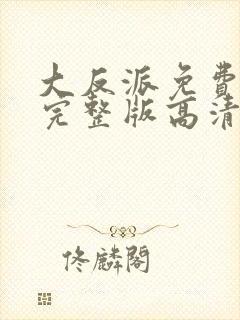 大反派免費
完整版高清
佟麟閣